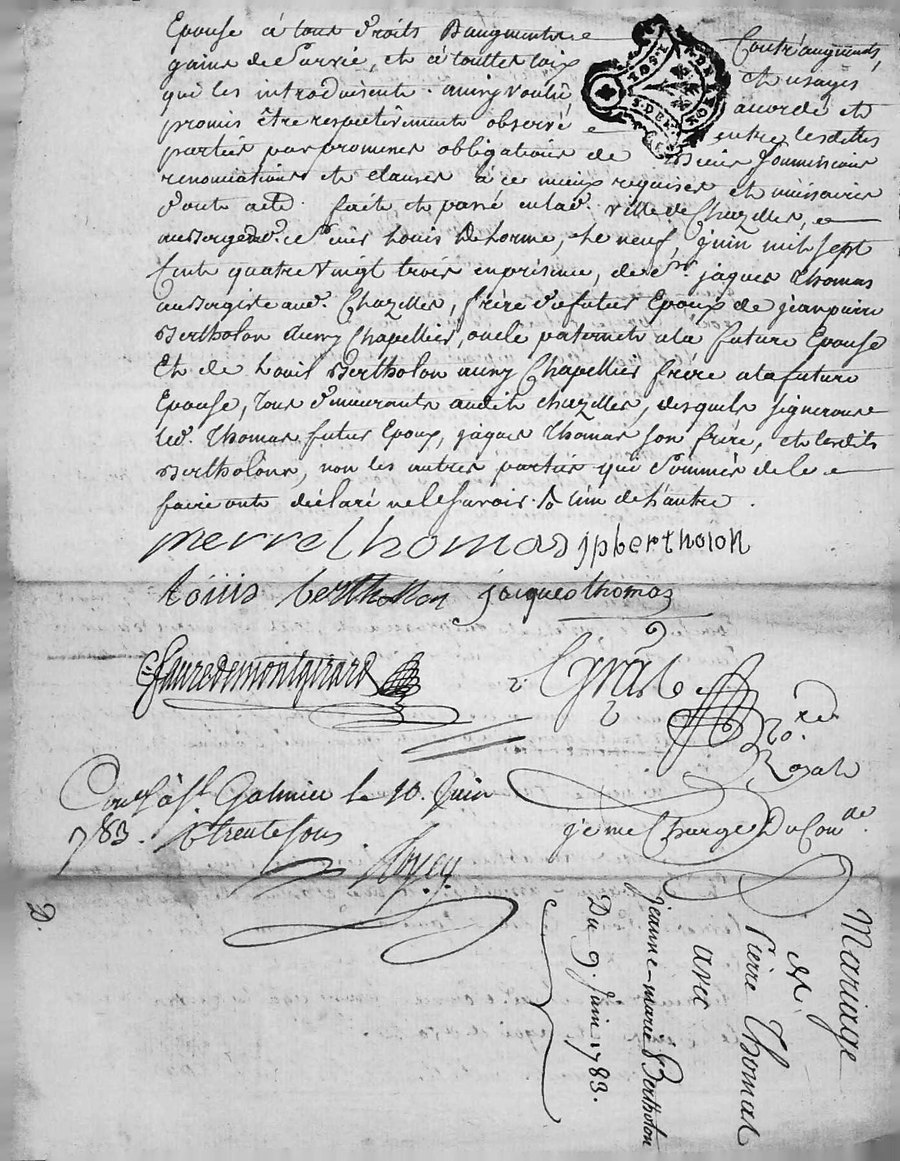 Epouse à tous droits D'augments Contr'augments,
gains de Survie, et à toutes loix et usages
qui les introduisent. ainsy voulu accordé et
promis être respectivement observé entre lesdittes
parties par promesses obligations de Biens Soumissions
renonciations et clauses à ce mieux requises et nécéssaires
Dont acte. fait et passé en lad. ville de Chazelles,
au Logis de Louis Delorme, le neuf, juin mil sept
Cent quatre vingt trois en présence, de Sr jaques Thomas
auBergiste aud. Chazelles, frère du futur Epoux de jean pierre
Bertholon aussy Chapellier, oncle paternel a la future Epouse
Et de Louis Bertholon aussy Chapellier frère a la future
Epouse, tous demeurants audit chazelles, desquels signeront
led. Thomas futur Epoux, jaques Thomas son frère, et lesdits
Bertholons, non les autres parties qui Sommés de le
faire ont déclaré ne le Savoir. L'un de L'autre.
pierre thomas jp bertholon
Louis bertholon jacques thomas
faure de montgirard
Gras Nore.
Royal
Con.lé à St. Galmier le 10. Juin
1783. R. trente sous
je me Charge Du Con.le
D.
Mariage
De
Pierre Thomas
avec
jeanne-marie Bertholon
Du 9. Juin 1783.